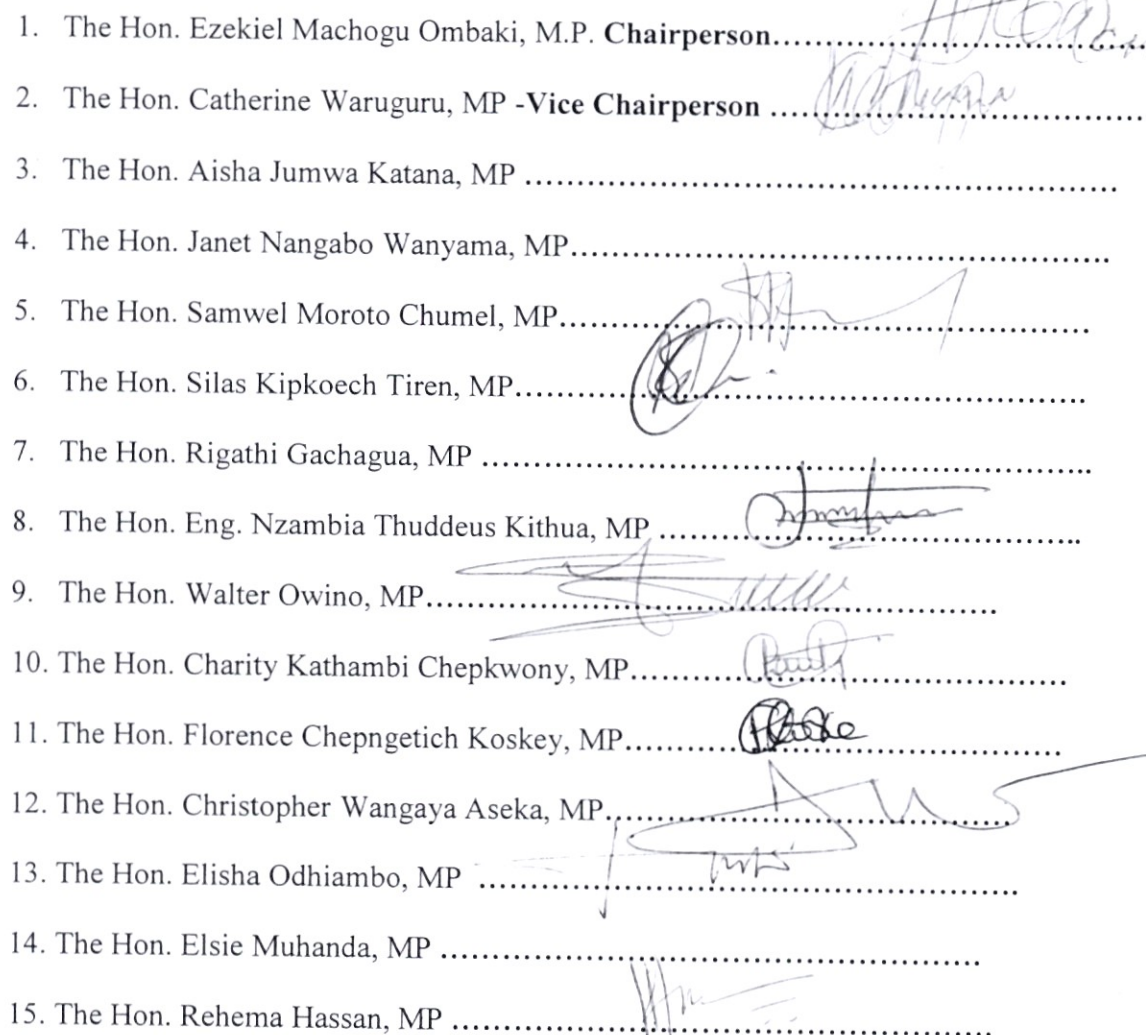 1. The Hon. Ezekiel Machogu Ombaki, M.P. Chairperson..............................
2. The Hon. Catherine Waruguru, MP -Vice Chairperson ....................................
3. The Hon. Aisha Jumwa Katana, MP ............................................................
4. The Hon. Janet Nangabo Wanyama, MP......................................................
5. The Hon. Samwel Moroto Chumel, MP.....................................................
6. The Hon. Silas Kipkoech Tiren, MP.........................................................
7. The Hon. Rigathi Gachagua, MP .............................................................
8. The Hon. Eng. Nzambia Thuddeus Kithua, MP ..........................................
9. The Hon. Walter Owino, MP.........................................................
10. The Hon. Charity Kathambi Chepkwony, MP...........................................
11. The Hon. Florence Chepngetich Koskey, MP...........................................
12. The Hon. Christopher Wangaya Aseka, MP........................................
13. The Hon. Elisha Odhiambo, MP ......................................................
14. The Hon. Elsie Muhanda, MP ......................................................
15. The Hon. Rehema Hassan, MP ......................................................